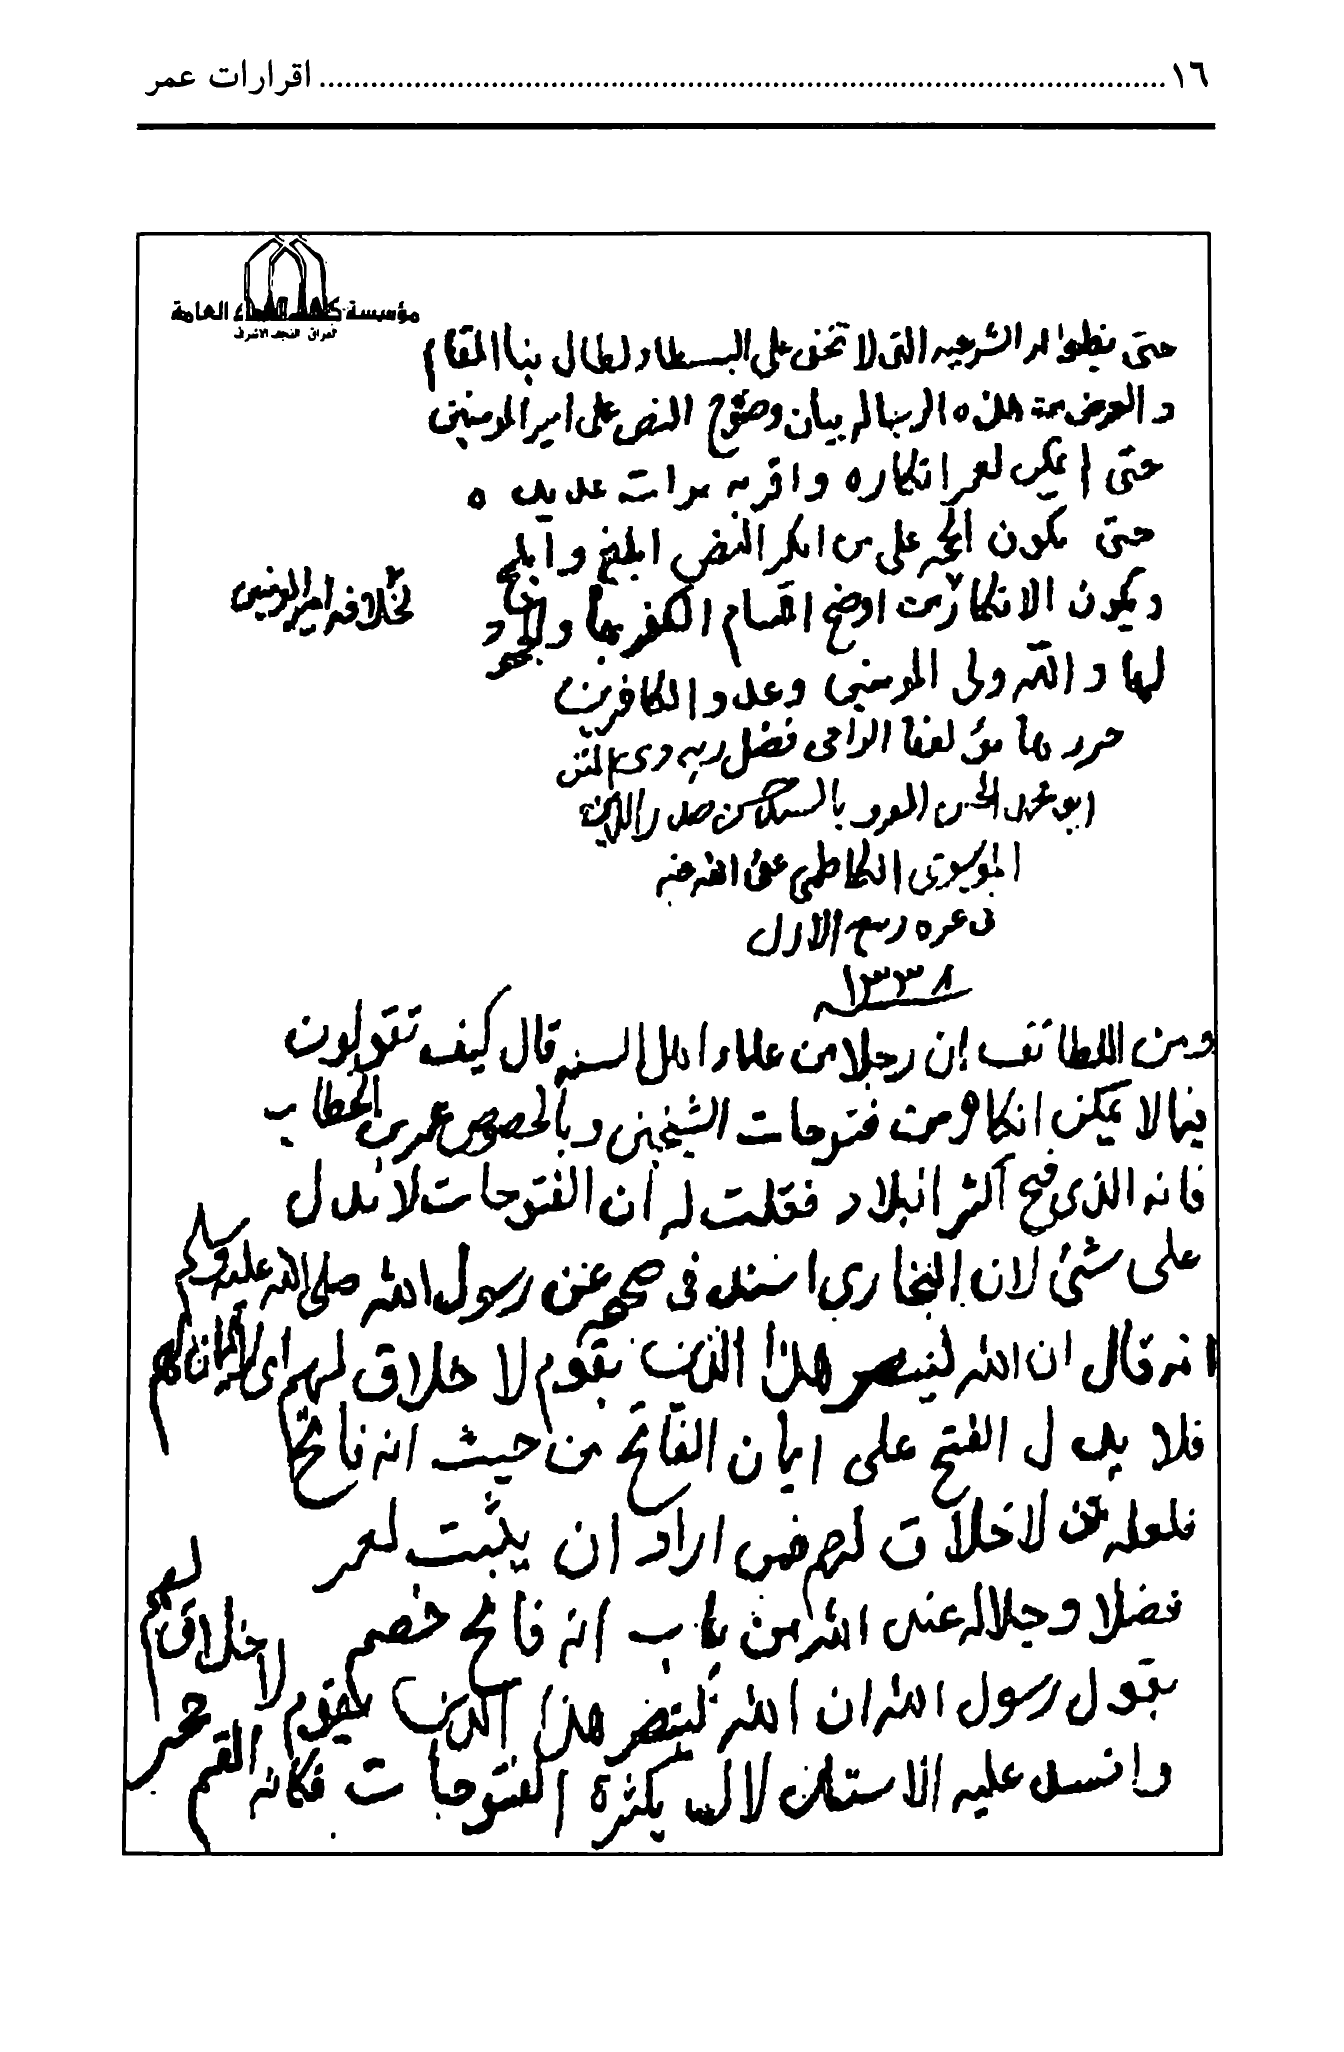 ١٦ ........ اقرارات عمر
مؤسسة كاشف الغطاء العامة
العراق النجف الاشرف
حتى الشرعيه التى لا تخفى على لطال بنا المقام
و الغرض من هذه الرساله بيان وضوح النص على امير المومنين
حتى لم يمكن لعمر انكاره واقر به مرات عديده
حتى يكون الحجه على من انكر النص ابلغ و
لخلافه امير المومنين
ويكون الانكار من اوضح اقسام الكفر بها
لها والله ولى المومنين وعدو الكافرين
حرر ها مؤلفها الراجى فضل ربه ذى المنن
ابو محمد الحسن المعروف بالسيد حسن صدر الدين
الموسوى الكاظمى عفى الله عنه
فى غره ربيع الاول
١٣٣٨
ومن اللطائف إن رجلا من علماء اهل السنه قال كيف تقولون
فيما لا يمكن انكاره من فتوحات الشيخين وبالخصوص عمر بن الخطاب
فانه الذى فتح اكثر البلاد فقلت له ان الفتوحات لا تدل
على شئ لان البخارى اسند فى صحيحه عن رسول الله صلى الله عليه وسلم
انه قال ان الله لينصر هذا الدين بقوم لا خلاق لهم اى لا ايمان لهم
فلا يدل الفتح على ايمان الفاتح من حيث انه فاتح
فلعله ممن لا خلاق لهم فمن اراد ان يثبت لعمر
فضلا وجلاله عند الله من باب انه فاتح خصم
بقول رسول الله ان الله لينصر هذا الدين بقوم لا خلاق لهم
وانسد عليه الاستدلال بكثرة الفتوحات فكانه القم حجر